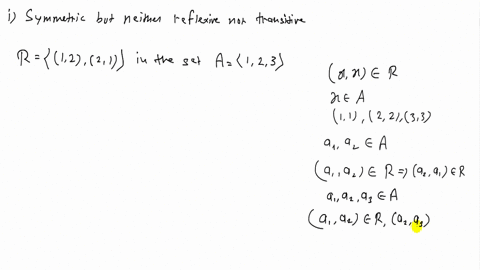 i) Symmetric but neither reflexive nor transitive
R = {(1,2), (2,1)} in the set A = {1, 2, 3}
(x, x) ∈ R
x ∈ A
(1,1), (2,2), (3,3)
a₁, a₂ ∈ A
(a₁, a₂) ∈ R ⇒ (a₂, a₁) ∈ R
a₁, a₂, a₃ ∈ A
(a₁, a₂) ∈ R, (a₂, a₃)